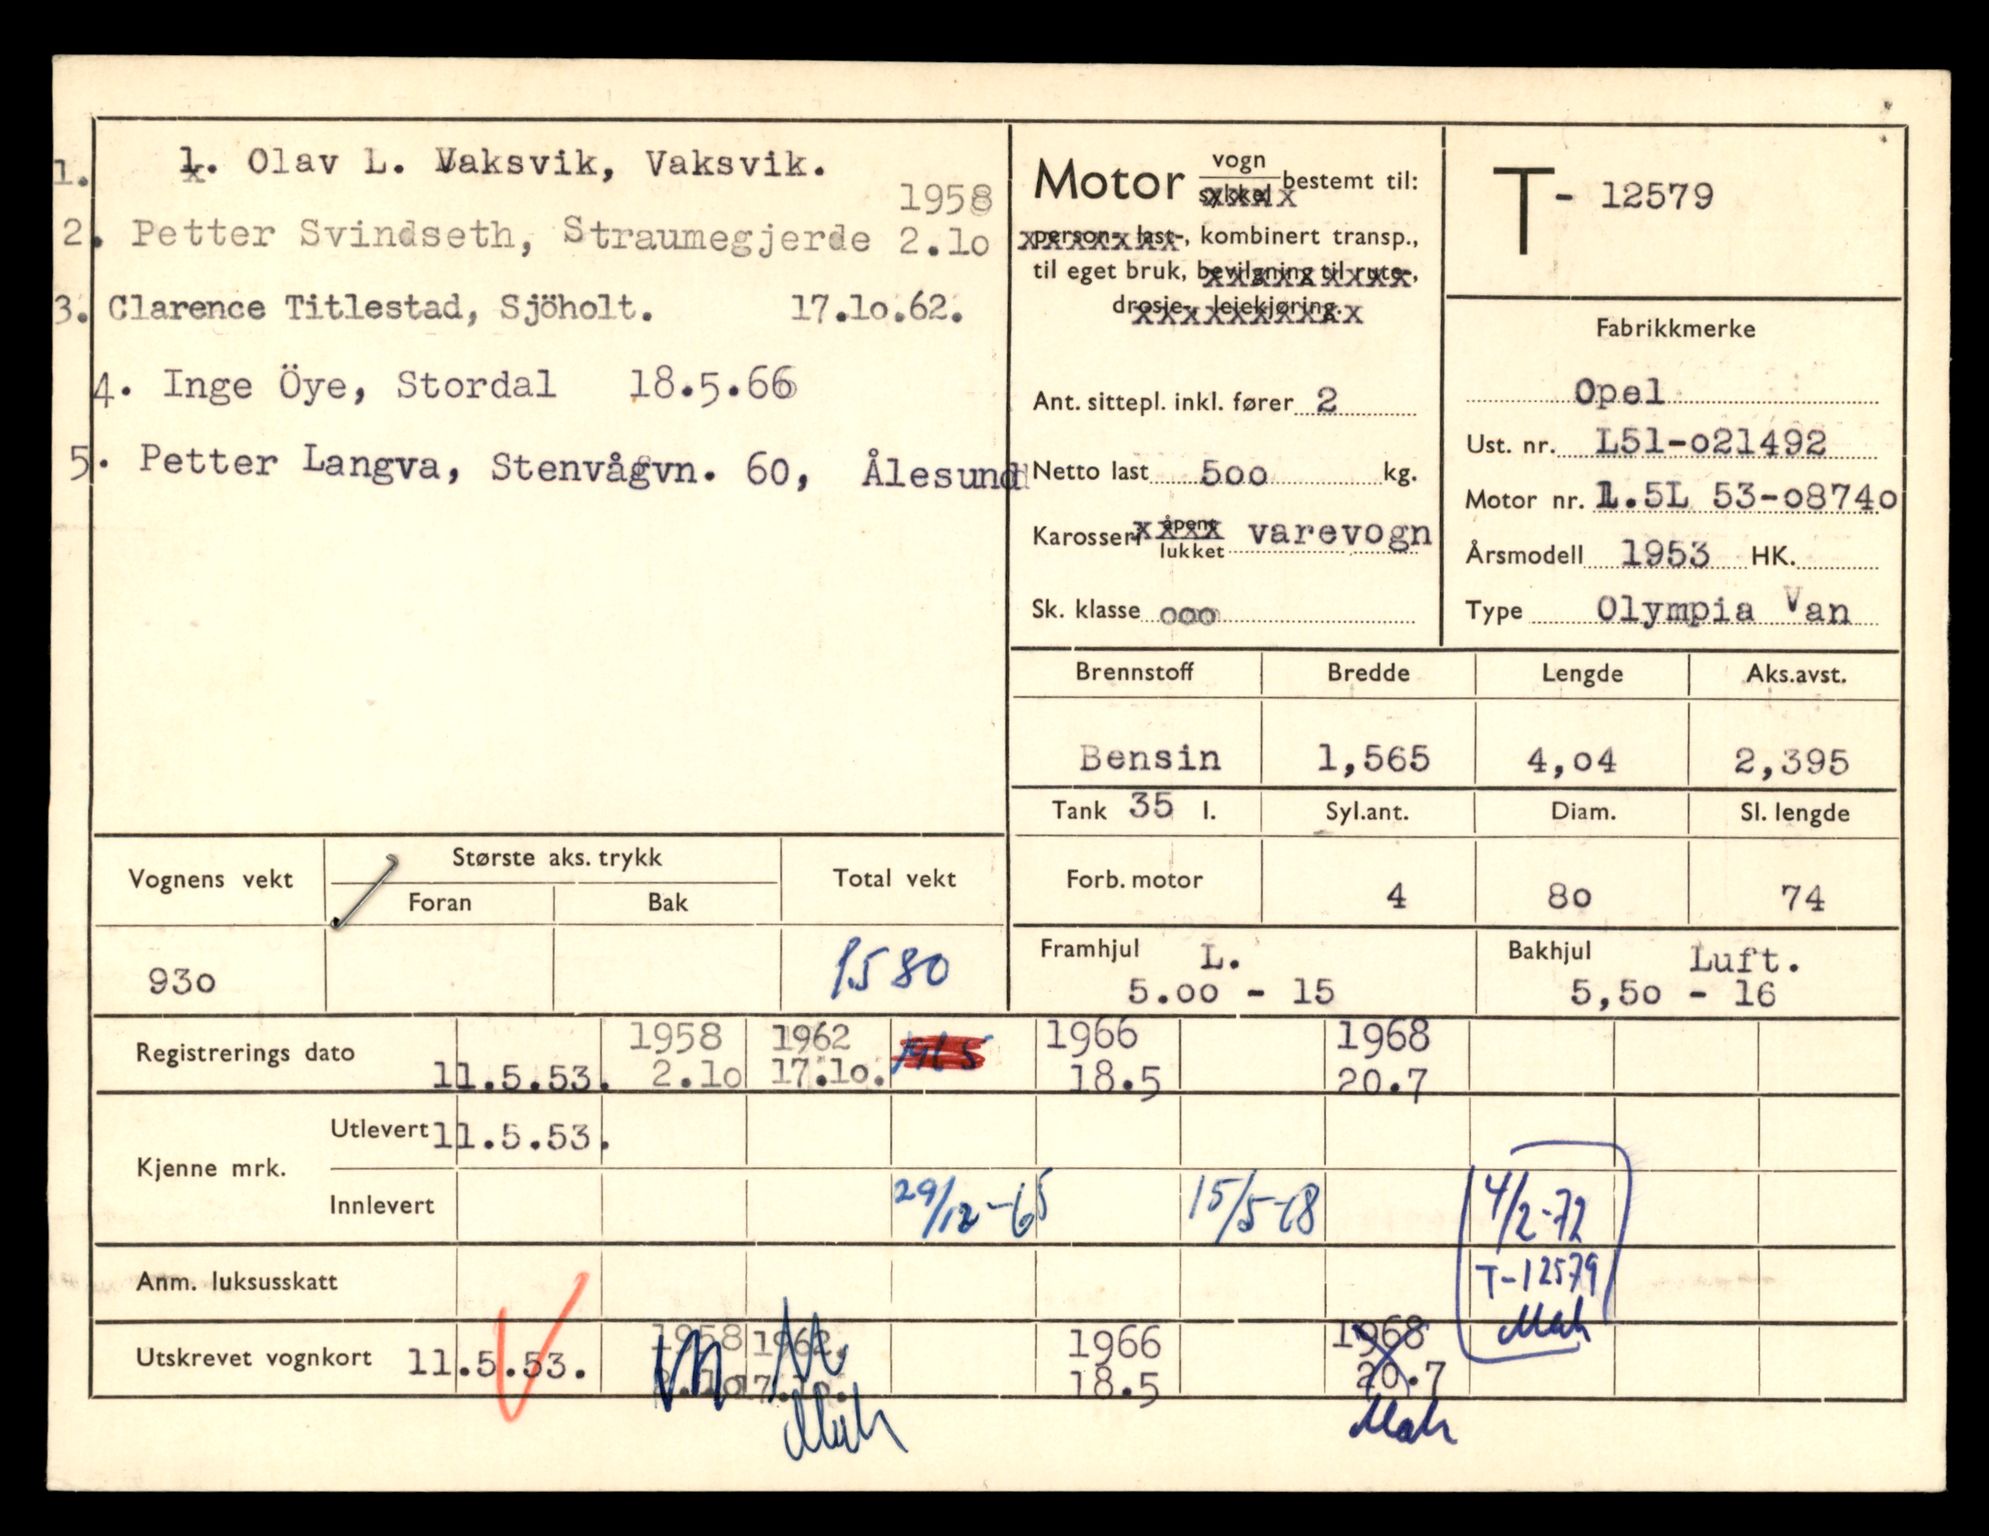 1. 1. Olav L. Vaksvik, Vaksvik.
1958
2. Petter Svindseth, Straumegjerde 2.10
3. Clarence Titlestad, Sjöholt. 17.10.62.
4. Inge Öye, Stordal 18.5.66
5. Petter Langva, Stenvågvn. 60, Ålesund
Motor vogn sykkel bestemt til:
person-, last-, kombinert transp.,
til eget bruk, bevilgning til rute-,
drosje-, leiekjøring.
Ant. sittepl. inkl. fører 2
Netto last 500 kg.
Karosseri åpent lukket varevogn
Sk. klasse 000
T- 12579
Fabrikkmerke
Opel
Ust. nr. L51-021492
Motor nr. 1.5L 53-08740
Årsmodell 1953 HK.
Type Olympia Van
Brennstoff Bredde Lengde Aks.avst.
Bensin 1,565 4,04 2,395
Tank 35 l. Syl.ant. Diam. Sl. lengde
Forb. motor 4 80 74
Framhjul L. Bakhjul Luft.
5.00 - 15 5,50 - 16
Vognens vekt Største aks. trykk Total vekt
Foran Bak
930 1580
Registrerings dato 11.5.53. 1958 2.10 1962 17.10. 1965 1966 18.5 1968 20.7
Kjenne mrk.
Utlevert 11.5.53.
Innlevert 29/12-65 15/5-68 4/2-72
T-12579
Anm. luksusskatt
Utskrevet vognkort 11.5.53. 1958 2.10 1962. 17.10. 1966 18.5 1968 20.7